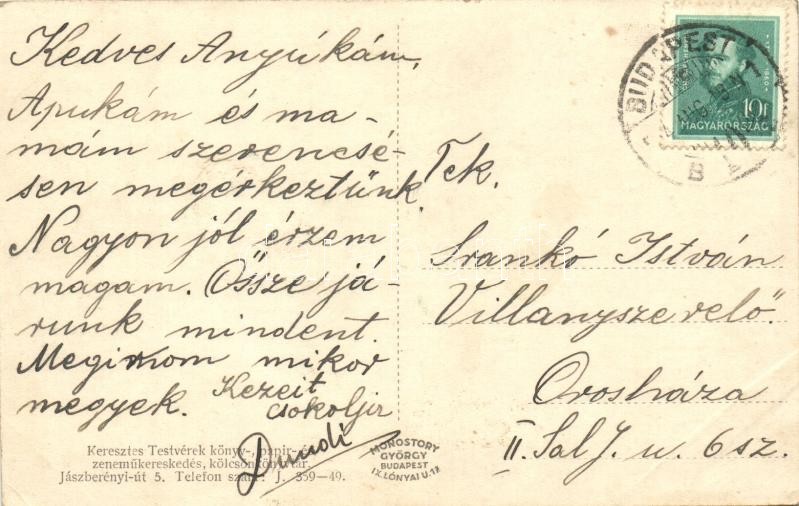 Kedves Anyúkám,
Apukám és ma-
mám szerencsé-
sen megérkeztünk.
Nagyon jól érzem
magam. Össze já-
runk mindent.
Megirom mikor
megyek. Kezeit
csokoljer
Dundi
Keresztes Testvérek könyv-, papir- és
zeneműkereskedés, kölcsönkönyvtár.
Jászberényi-út 5. Telefon szám: J. 359-49.
MOROSTORY
GYÖRGY
BUDAPEST
IX. LÓNYAI U. 17
BUDAPEST
10f
MAGYARORSZÁG
Tek.
Srankó István
Villanyszerelő.
Orosháza
II. Sal J. u. 6 sz.